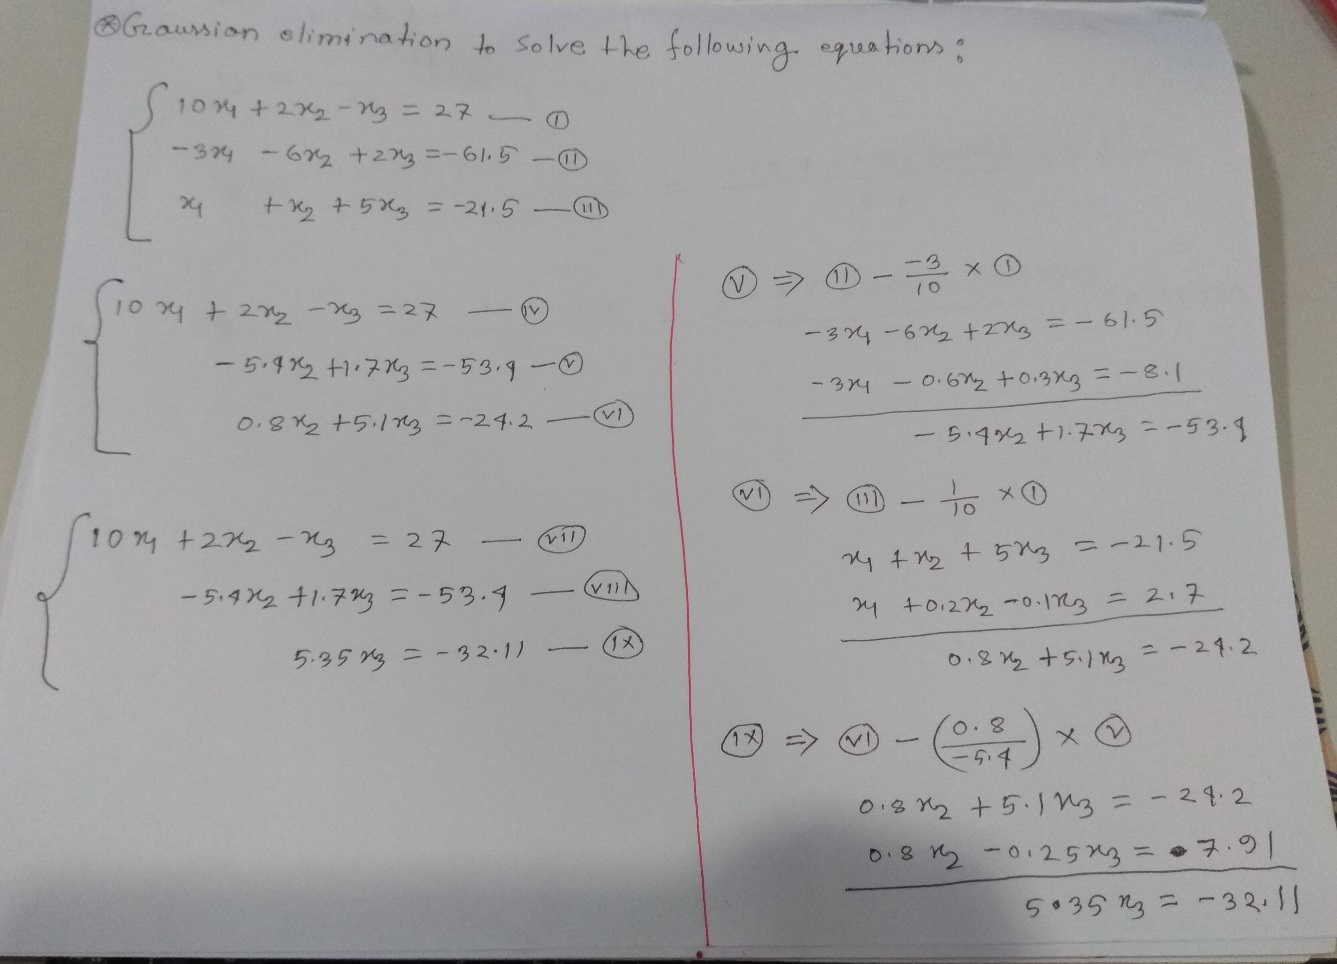 ⊛ Gaussian elimination to solve the following equations:
10x₁ + 2x₂ - x₃ = 27 — (I)
-3x₁ - 6x₂ + 2x₃ = -61.5 — (II)
x₁ + x₂ + 5x₃ = -21.5 — (III)
10x₁ + 2x₂ - x₃ = 27 — (IV)
-5.4x₂ + 1.7x₃ = -53.4 — (V)
0.8x₂ + 5.1x₃ = -24.2 — (VI)
10x₁ + 2x₂ - x₃ = 27 — (VII)
-5.4x₂ + 1.7x₃ = -53.4 — (VIII)
5.35x₃ = -32.11 — (IX)
(V) ⇒ (II) - -3/10 × (I)
-3x₁ - 6x₂ + 2x₃ = -61.5
-3x₁ - 0.6x₂ + 0.3x₃ = -8.1
-5.4x₂ + 1.7x₃ = -53.4
(VI) ⇒ (III) - 1/10 × (I)
x₁ + x₂ + 5x₃ = -21.5
x₁ + 0.2x₂ - 0.1x₃ = 2.7
0.8x₂ + 5.1x₃ = -24.2
(IX) ⇒ (VI) - (0.8/-5.4) × (V)
0.8x₂ + 5.1x₃ = -24.2
0.8x₂ - 0.25x₃ = 7.91
5.35x₃ = -32.11